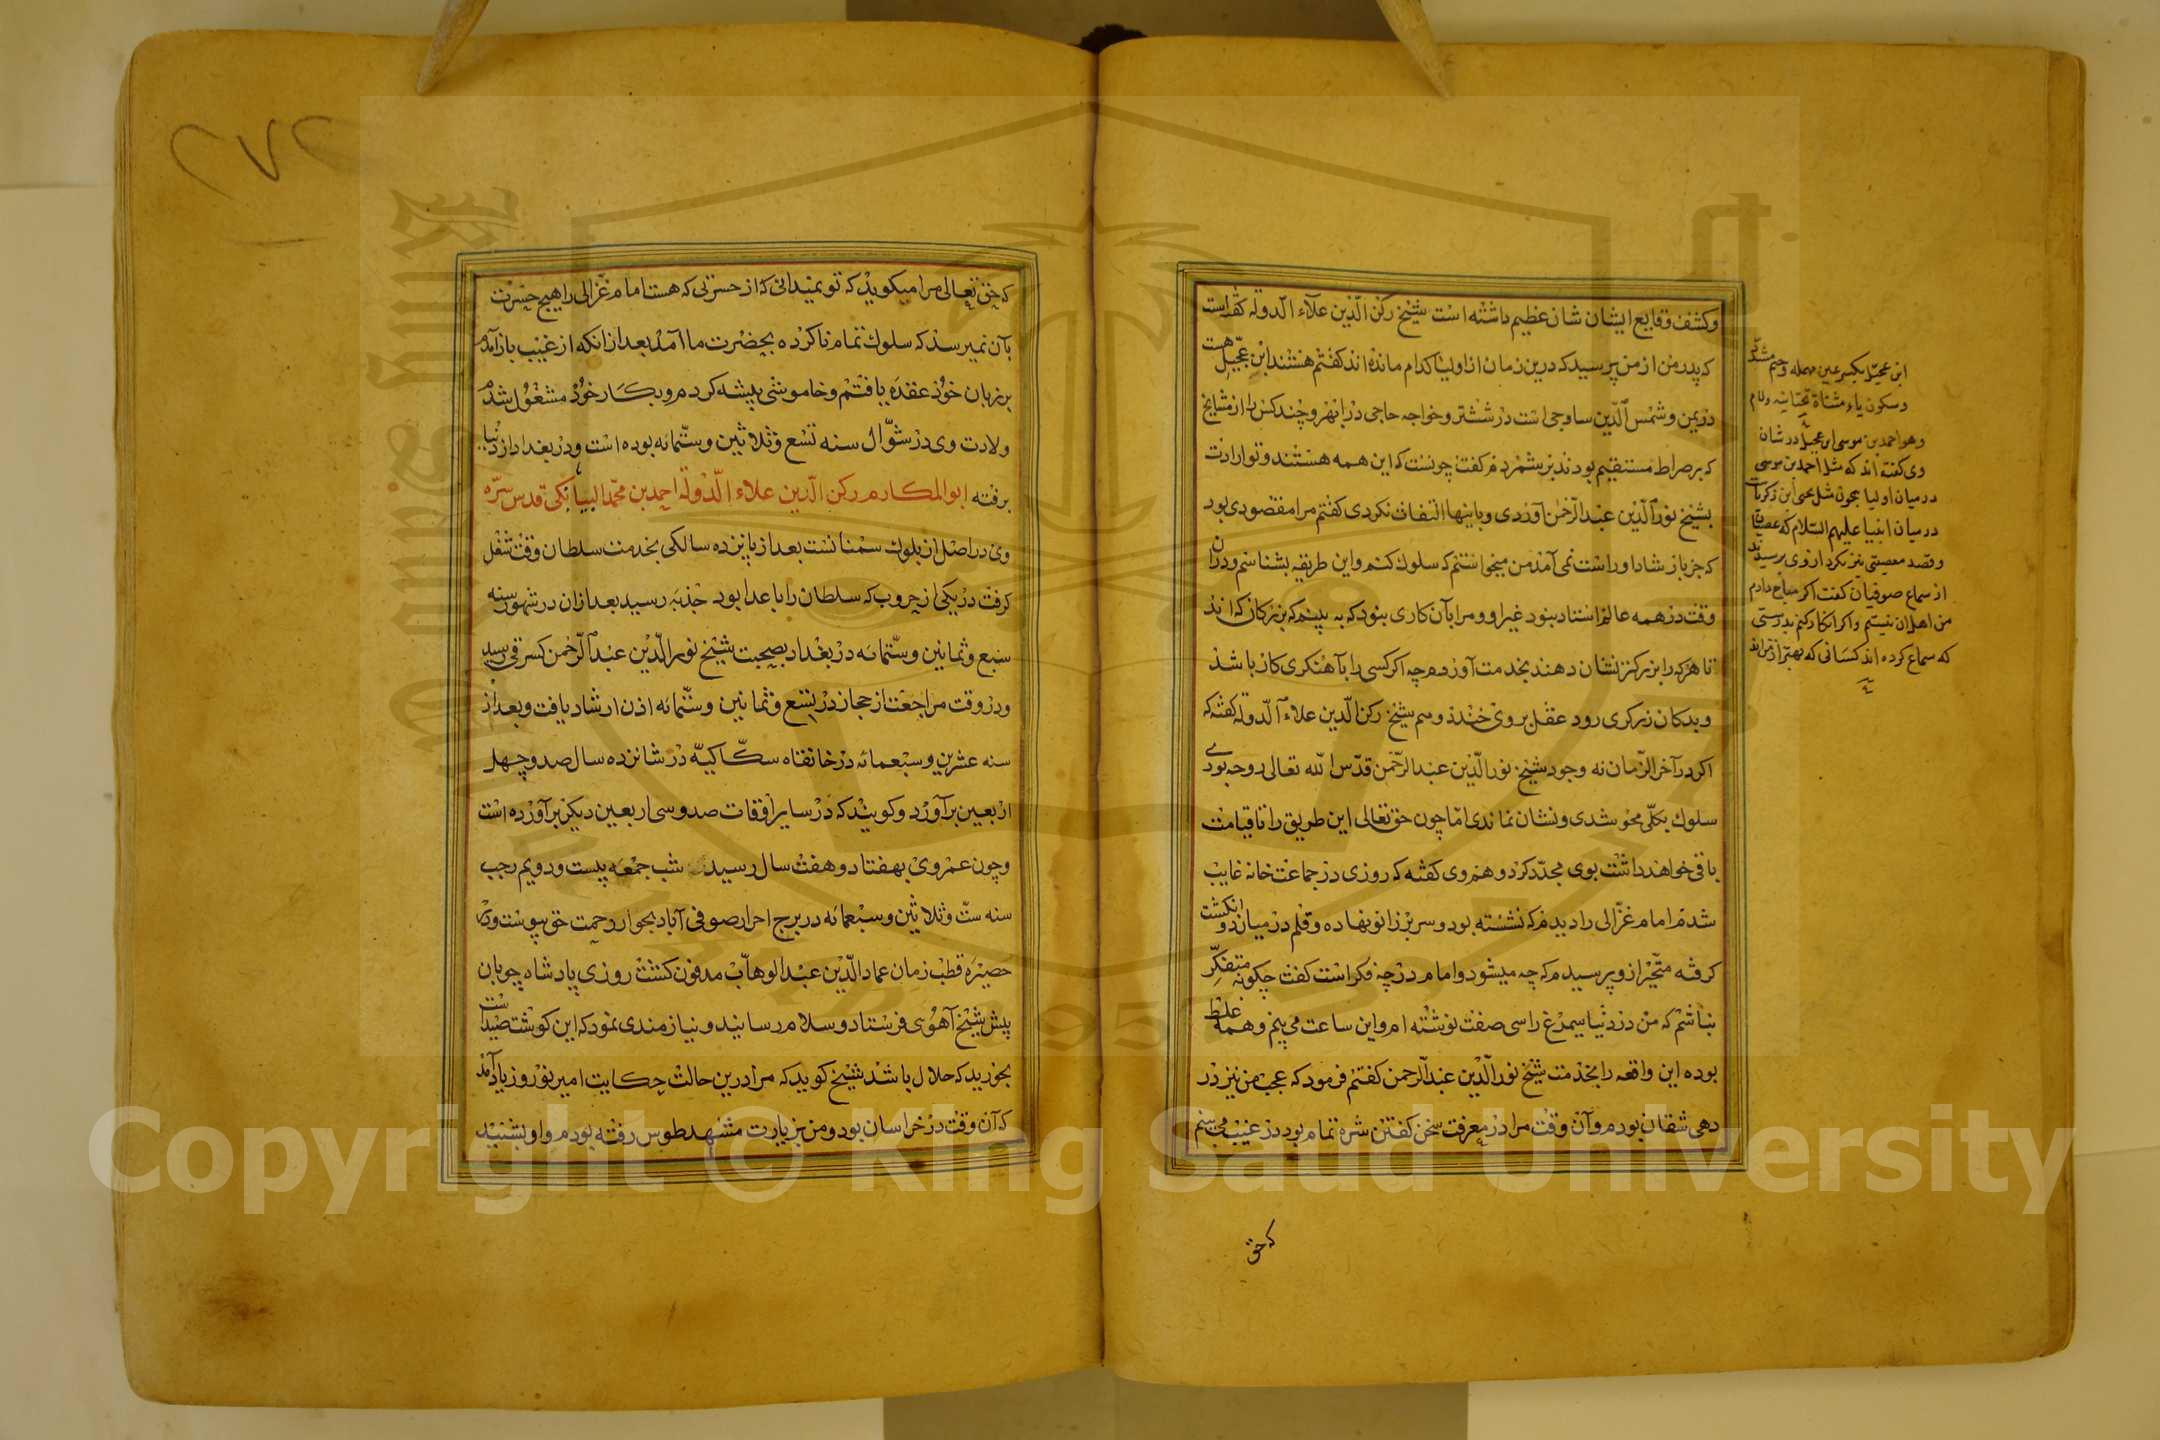 وکشف وقایع ایشان شان عظیم داشته است شیخ رکن الدّین علاء الدوله گفته است
که پدر من از من پرسید که درین زمان از اولیا کدام مانده اند گفتم هستند ابن عجیل هست
در یمن و شمس الدین ساوجی است در ششتر و خواجه حاجی در ابهر و چند کس را از مشایخ
که بر صراط مستقیم بودند بر شمردم گفت چونست که این همه هستند و تو ارادت
بشیخ نور الدین عبد الرحمن آوردی و باینها التفات نکردی گفتم مرا مقصودی بود
که جز باز شاد او راست نمی آمد من میخواستم که سلوک کنم و این طریقه بشناسم و در آن
وقت در همه عالم استاد نبود غیر او و مرا بآن کاری نبود که به بینم که بزرگان که اند
تا هرکه را بزرگتر نشان دهند بخدمت او روم چه اگر کسی را بآهنگری کار باشد
و بدکان زرگری رود عقل بر وی خندد و هم شیخ رکن الدین علاء الدوله گفته که
اگر در آخر الزمان نه وجود شیخ نور الدین عبد الرحمن قدّس الله تعالی روحه بودی
سلوک بکلّی محو شدی و نشان نماندی امّا چون حق تعالی این طریق را تا قیامت
باقی خواهد داشت بوی مجدّد کرد و هم وی گفته که روزی در جماعت خانه غایب
شدم امام غزّالی را دیدم که نشسته بود و سر بر زانو نهاده و قلم در میان دو انگشت
گرفته متحیّر از و پرسیدم که چه میشود و امام در چه فکر است گفت چگونه متفکّر
نباشم که من در دنیا سیمرغ را سی صفت نوشته ام و این ساعت می بینم و همه غلط
بوده این واقعه را بخدمت شیخ نور الدین عبد الرحمن گفتم فرمود که عجب من نیز در
دهی شقان بودم و آن وقت مرا در معرفت سخن گفتن شره تمام بود در غیب می بینم
که حق
ابن عجیل بکسر عین مهمله و جیم مشدّد
و سکون یاء مثناة تحتانیه و لام
و هو احمد بن موسی ابن عجیل در شان
وی گفته اند که مثل احمد بن موسی
در میان اولیا همچون مثل یحیی ابن زکریاست
در میان انبیا علیهم السّلام که عصیان
و قصد معصیتی نیز نکرد از وی پرسیدند
از سماع صوفیان گفت اگر مباح دارم
من اهل آن نیستم و اگر انکار کنم بدرستی
که سماع کرده اند کسانی که بهتر از من اند
۲۷۲
که حق تعالی مرا میگوید که تو نمیدانی که از حسرتی که هست امام غزّالی را هیچ حسرت
بآن نمیرسد که سلوک تمام ناکرده بحضرت ما آمد بعد از آنکه از غیب باز آمدم
بر زبان خود عقده یافتم و خاموشی پیشه کردم و بکار خود مشغول شدم
ولادت وی در شوّال سنه تسع و ثلاثین و ستمائه بوده است و در بغداد از دنیا
برفته ابو المکارم رکن الدین علاء الدوله احمد بن محمد البیابانکی قدس سرّه
وی در اصل از ملوک سمنانست بعد از پانزده سالگی بخدمت سلطان وقت شغل
گرفت در یکی از حروب که سلطان را با عدا بود جذبه رسید بعد ازان در شهور سنه
سبع و ثمانین و ستمائه در بغداد بصحبت شیخ نور الدین عبد الرحمن کسرقی رسید
و در وقت مراجعت از حجاز در تسع و ثمانین و ستمائه اذن ارشاد یافت و بعد از
سنه عشرین و سبعمائه در خانقاه سکاکیه در شانزده سال صد و چهل
اربعین برآورد و گویند که در سایر اوقات صد و سی اربعین دیگر برآورده است
و چون عمر وی بهفتاد و هفت سال رسید شب جمعه بیست و دویم رجب
سنه ستّ و ثلاثین و سبعمائه در برج احرار صوفی آباد بجوار رحمت حق پیوست و در
حصیره قطب زمان عماد الدین عبد الوهاب مدفون گشت روزی پادشاه چوبان
پیش شیخ آهوی فرستاد و سلام رسانید و نیازمندی نمود که این گوشت صید است
بخورید که حلال باشد شیخ گوید که مرا درین حالت حکایت امیر نوروز یاد آمد
که آن وقت در خراسان بود و من بزیارت مشهد طوس رفته بودم و او بشنید
Copyright © King Saud University
King Saud University
1957